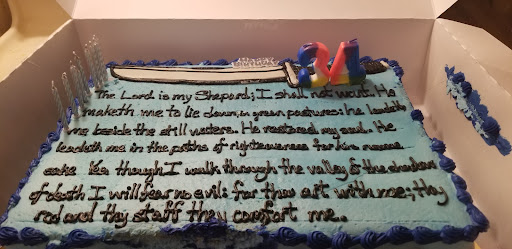 The Lord is my Shepard; I shall not want. He
maketh me to lie down, in green pastures: he leadeth
me beside the still waters. He restored my soul. He
leadeth me in the paths of righteousness for his names
sake Yea though I walk through the valley of the shadow
of death I will fear no evil: for thou art with me; thy
rod and thy staff they comfort me.